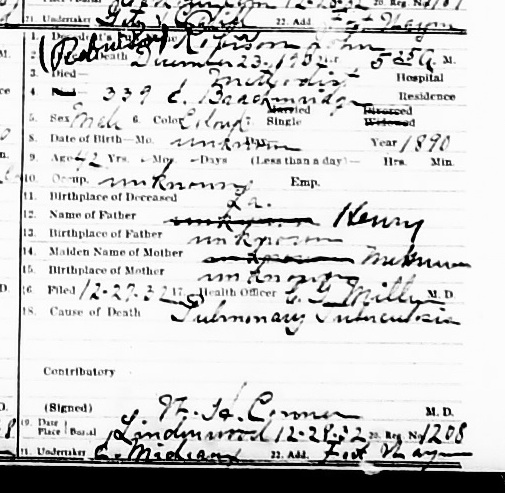 21. Undertaker 22. Add. Fort Wayne
1. Decedent's Full Name (Robinson) John
2. Death December 23, 1932 Hr. 5 35 A. M.
3. Died— Methodist Hospital
4. 339 E. Brackenridge Residence
5. Sex Male 6. Color Colored 7. Married Single Divorced Widowed
8. Date of Birth—Mo. unknown Day Year 1890
9. Age 42 Yrs. —Mos. —Days (Less than a day)— Hrs. Min.
10. Occup. unknown Emp.
11. Birthplace of Deceased Ga.
12. Name of Father unknown Henry
13. Birthplace of Father unknown
14. Maiden Name of Mother unknown
15. Birthplace of Mother unknown
16. Filed 12-27-32 17. Health Officer M. D.
18. Cause of Death Pulmonary Tuberculosis
Contributory
(Signed) M. D.
19. Date Place Burial Lindenwood 12-28-32 20. Reg. No. 1208
21. Undertaker 22. Add. Fort Wayne